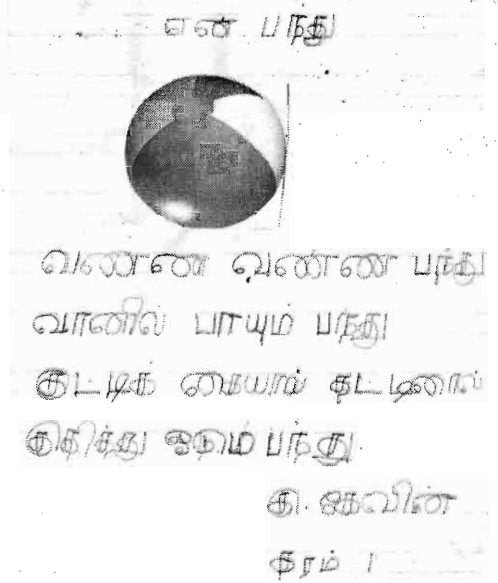 என் பந்து
வண்ண வண்ண பந்து
வானில் பாயும் பந்து
குட்டிக் கையால் தட்டினால்
குதித்து ஓடும் பந்து.
கு. கெவின்
தரம் 1